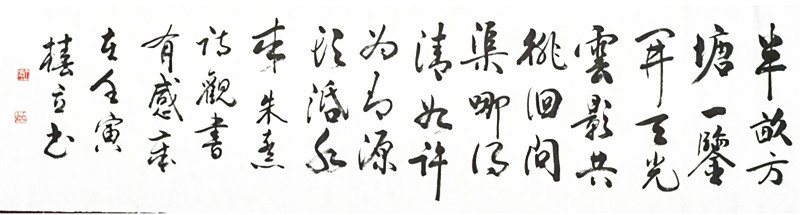 半畝方
塘一鑒
開天光
雲影共
徘徊問
渠哪得
清如許
为有源
頭活水
来朱熹
詩觀書
有感歲
在壬寅
椿立书